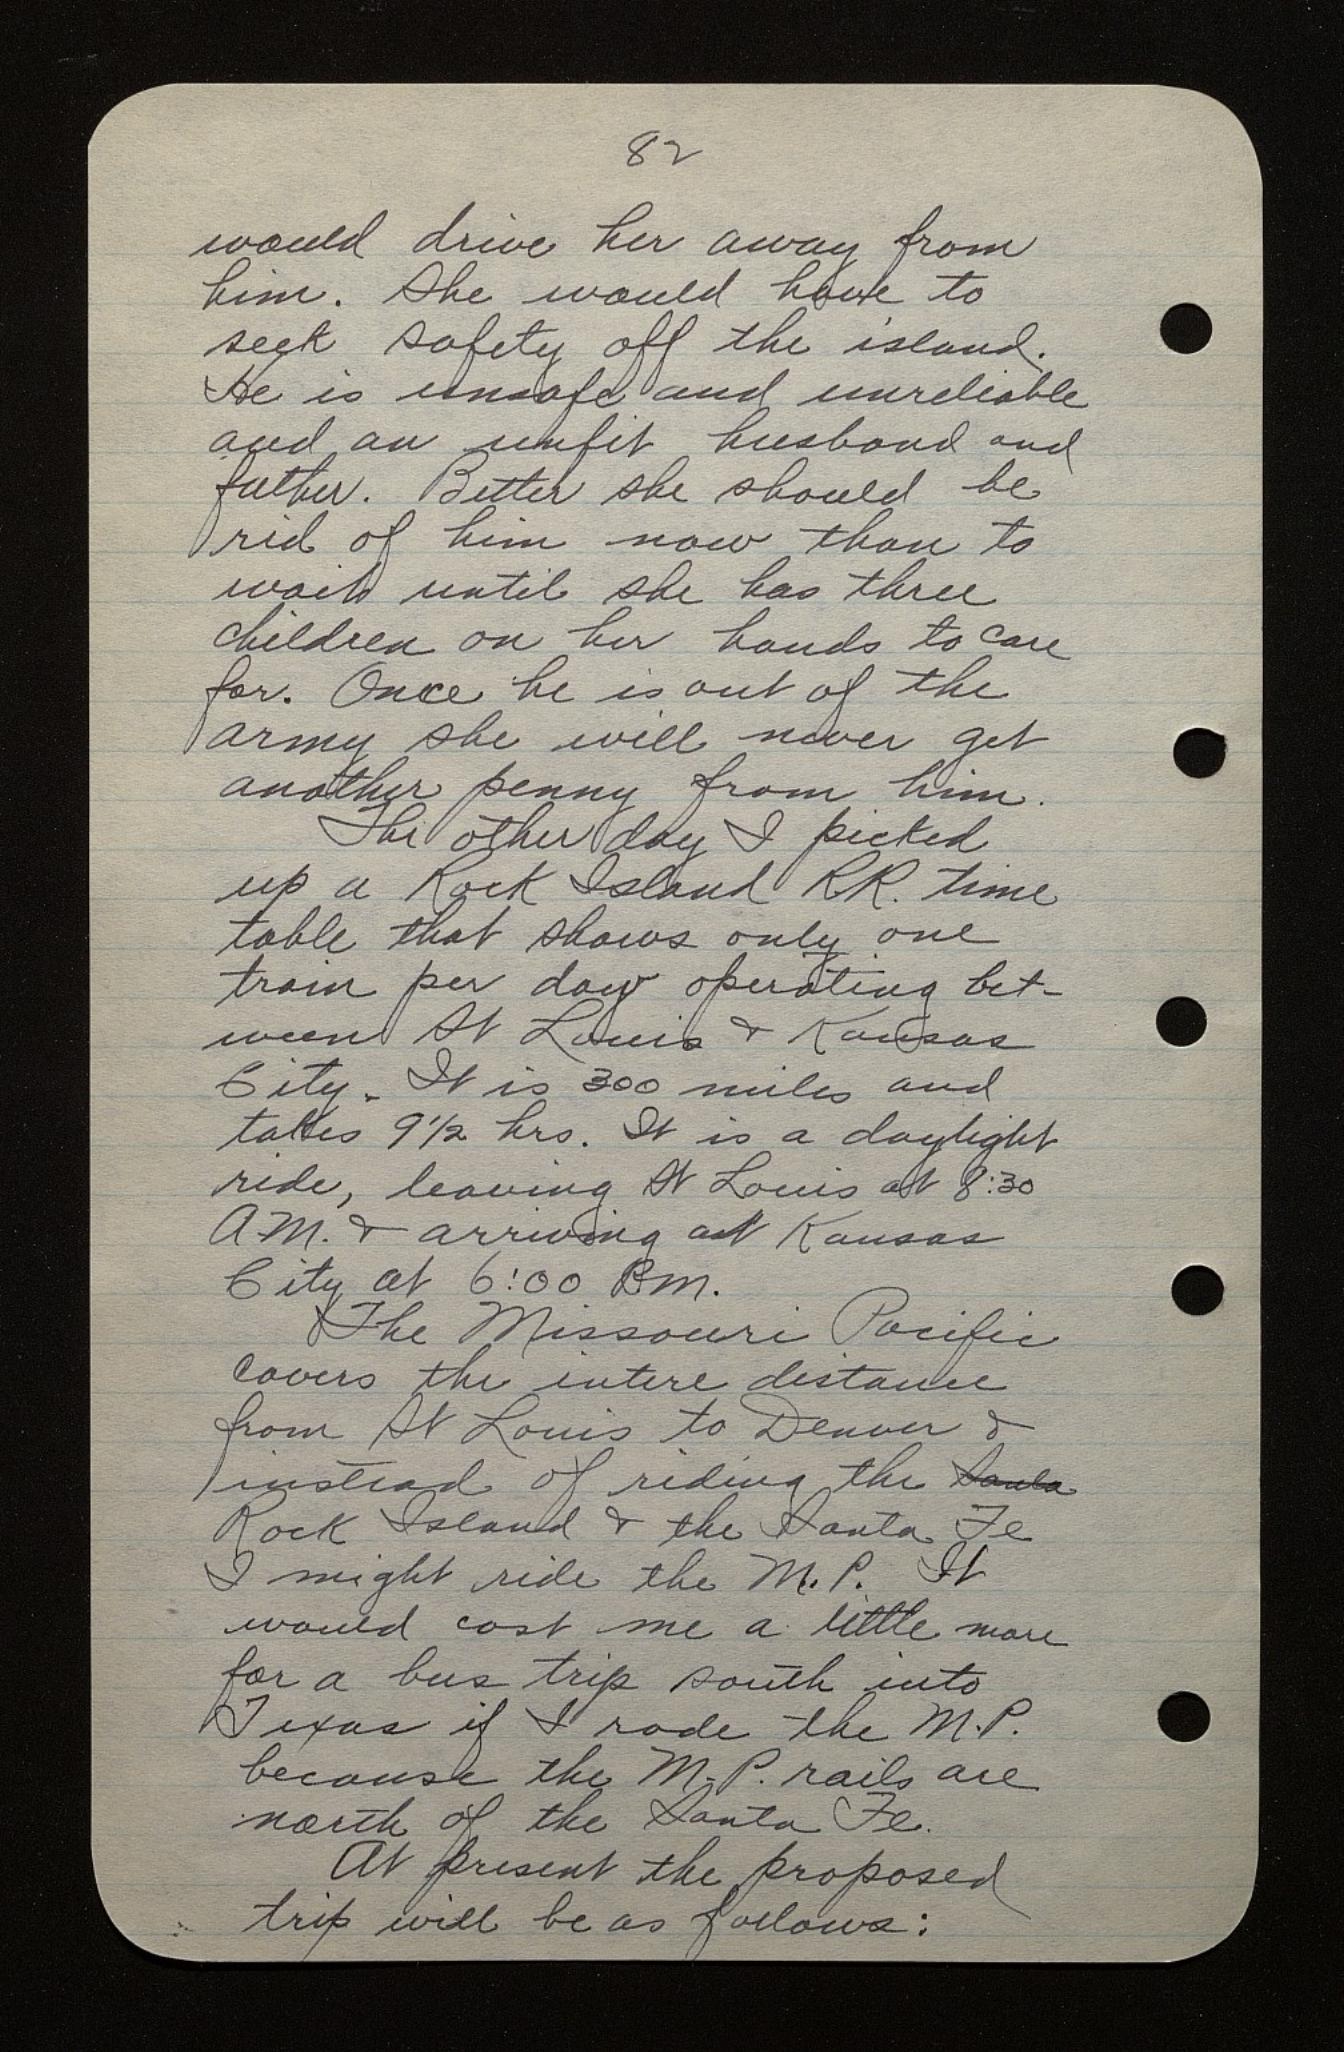 82
would drive her away from
him. She would have to
seek safety off the island.
He is unsafe and unreliable
and an unfit husband and
father. Better she should be
rid of him now than to
wait until she has three
children on her hands to care
for. Once he is out of the
army she will never get
another penny from him.
The other day I picked
up a Rock Island RR. time
table that shows only one
train per day operating bet-
ween St Louis & Kansas
City. It is 300 miles and
takes 9 1/2 hrs. It is a daylight
ride, leaving St Louis at 8:30
A.M. & arriving at Kansas
City at 6:00 P.M.
The Missouri Pacific
covers the intere distance
from St Louis to Denver &
instead of riding the Santa
Rock Island & the Santa Fe
I might ride the M.P. It
would cost me a little more
for a bus trip south into
Texas if I rode the M.P.
because the M.P. rails are
north of the Santa Fe.
At present the proposed
trip will be as follows: